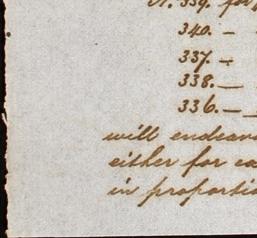 N. 339. for
340. —
337. —
338. —
336. —
will endeavo
either for ca
in proportio